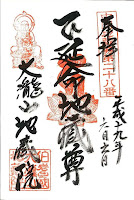 奉拝
第二十八番
平成二九年
六月六日
延命地蔵尊
大龍山
地蔵院